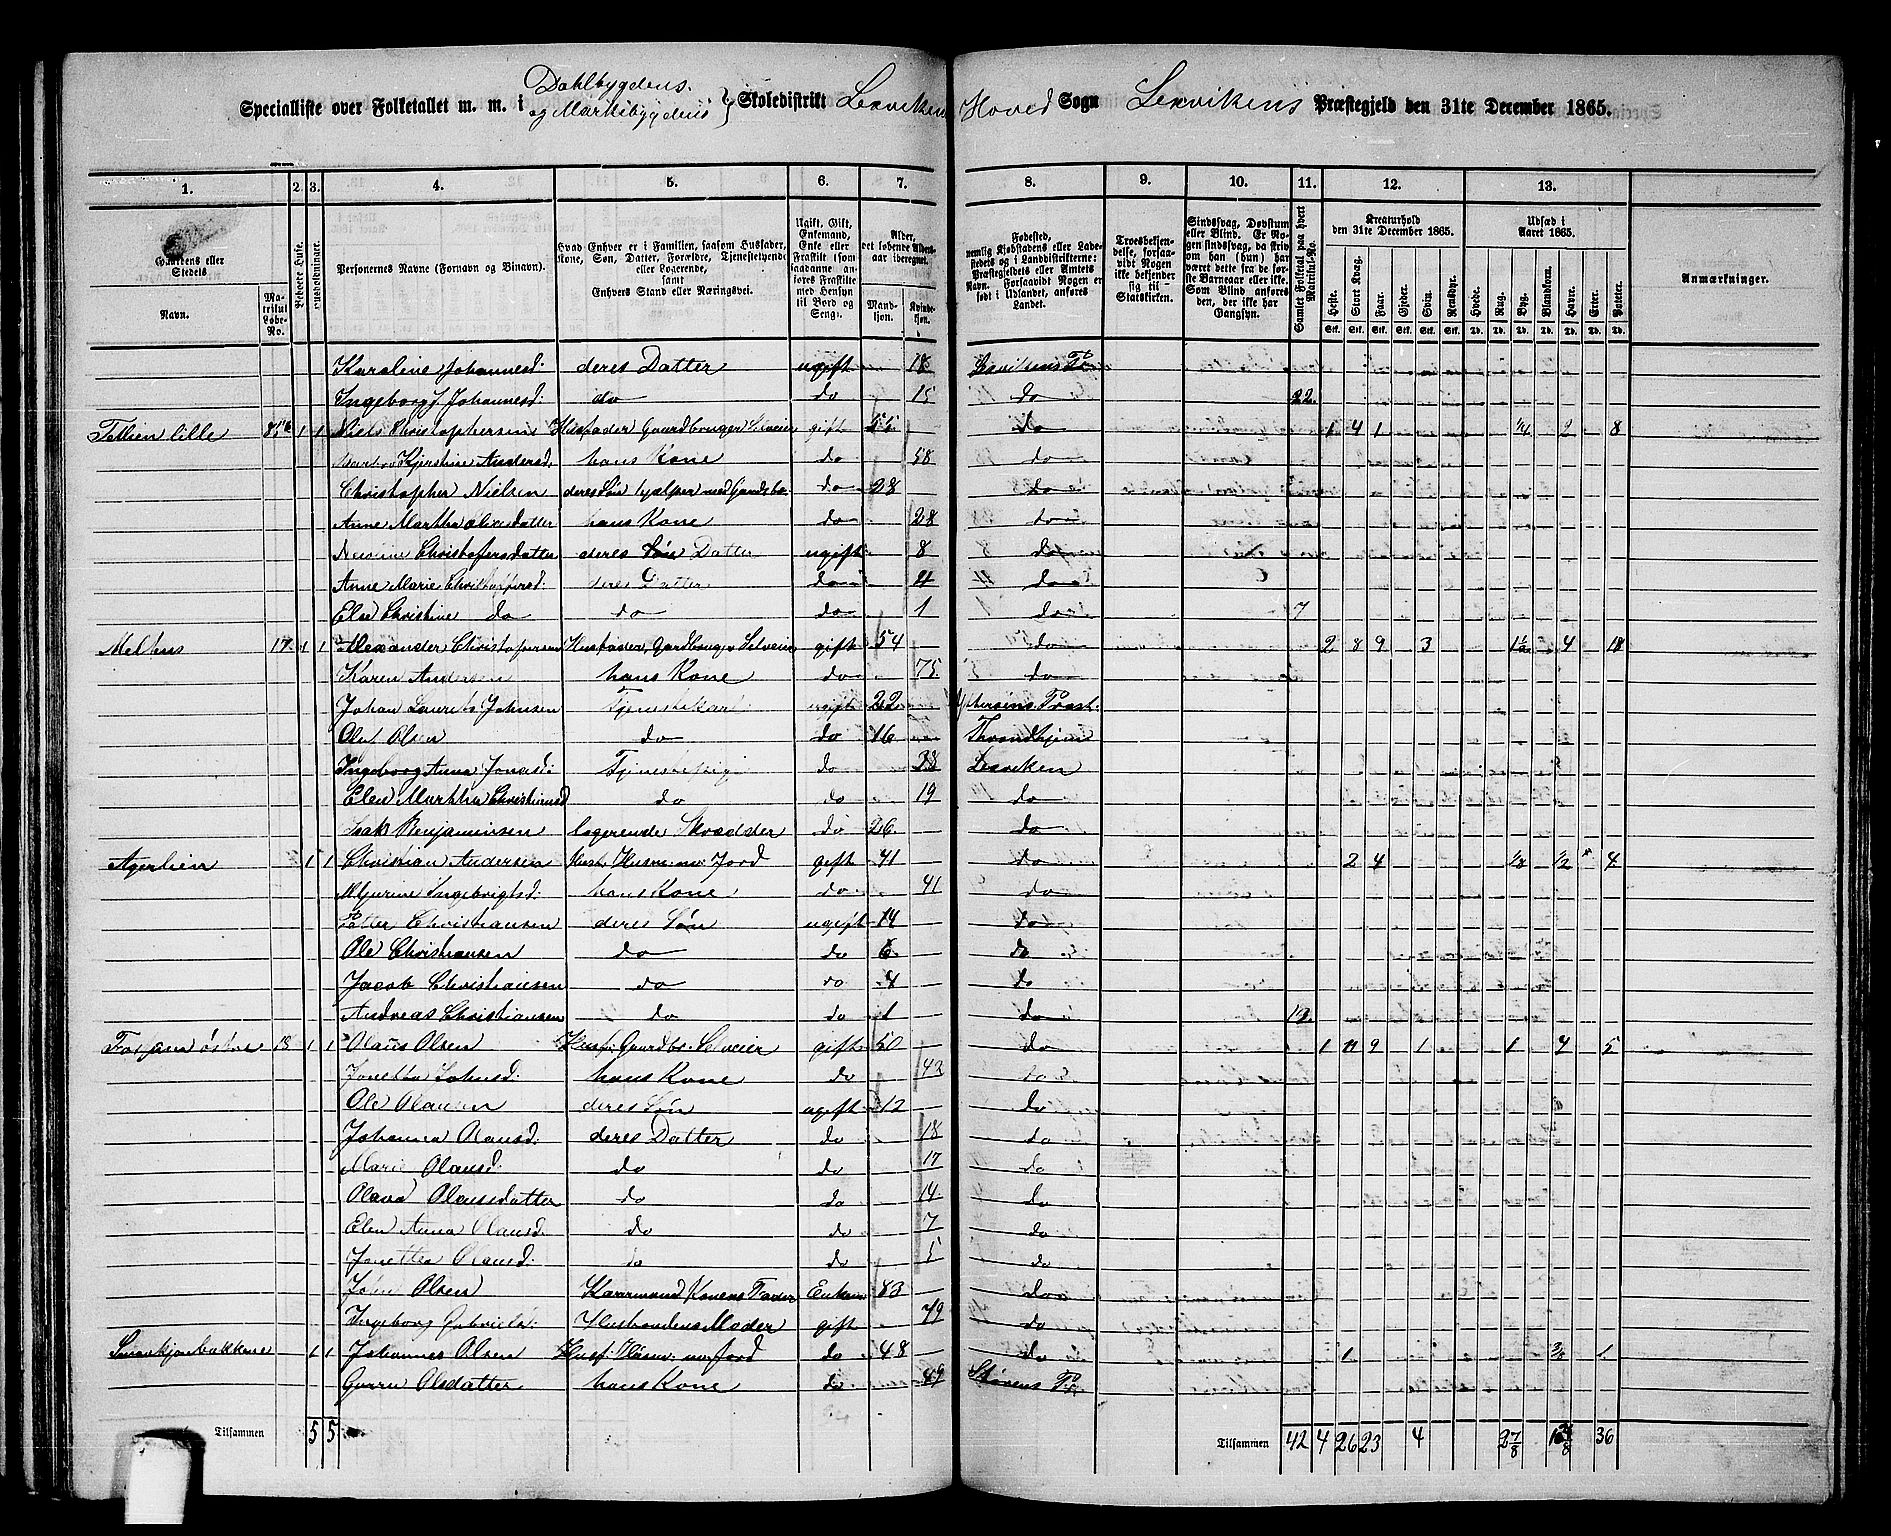 Specialliste over Folketallet m. m. i Dahlbygdens og Markabygdens Skoledistrikt Lexvikens Hoved Sogn Lexvikens Præstegjeld den 31te December 1865.
1. 2. 3. 4. 5. 6. 7. 8. 9. 10. 11. 12. 13.
Gaardens eller Stedets
Navn.
Matrikul Løbe-No.
Beboede Huse.
Husholdninger.
Personernes Navne (Fornavn og Binavn).
Hvad Enhver er i Familien, saasom Husfader, Kone, Søn, Datter, Forældre, Tjenestetyende eller Logerende, samt Enhvers Stand eller Næringsvei.
Ugift, Gift, Enkemand, Enke eller Fraskilt
Alder, det løbende Alders-aar iberegnet.
Mandkjøn. Kvindekjøn.
Fødested,
Troesbekjendelse, forsaavidt Nogen ikke bekjender sig til Statskirken.
Sindssvag, Døvstum eller Blind.
Samlet Folketal paa hvert Matrikul-No.
Kreaturhold den 31te December 1865.
Heste. Stort Kvæg. Faar. Gjeder. Svin. Rensdyr.
Udsæd i Aaret 1865.
Hvede. Rug. Byg. Blandkorn. Havre. Erter. Poteter.
Anmærkninger.
Karoline Johannesd. deres Datter ugift 18 Lexvikens Pr.
Ingeborg J. Johannesd. do do 15 do 22.
Tellien lille 1 1 Niels Christophersen Husfader Gaardbruger Selveier gift 55 do 1 4 1 1/4 2 8
Kjerstine Andersd. hans Kone do 58 do
Christopher Nielsen deres Søn hjælper med Gaardsbr. do 28 do
Anne Martha Olsdatter hans Kone do 28 do
Christofersdatter deres Datter ugift 8 do
Anne Marie Christoffersd. deres Datter do 4 do
Else Christine do do do 1 do 7
Melhus 17 1 1 Alexander Christophersen Husfader, Gardbruger Selveier gift 54 do 2 8 9 3 4
Karen Andersen hans Kone do 75. do
Johan Lauritz Johnsen Tjenestekar ugift 22 Ytterøens Præst.
Oluf Olsen do do 16 Throndhjem
Ingeborg Anna Jonasd. Tjenestepige do 38 Lexviken
Elen Martha Christiansd do do 19 do
Isak Benjaminsen logerende Skrædder do 26 do
Agerlien 1 1 Christian Andersen Husf. Husm. m. Jord gift 41 do 2 4 1/8 1/2 4
Ingebrigtsd. hans Kone do 41 do
Petter Christiansen deres Søn ugift 14 do
Ole Christiansen do do 6 do
Jacob Christiansen do do 4 do
Andreas Christiansen do do 1 do 13.
18 1 1 Olaus Olsen Husf. Gaardbr. Selveier gift 50 do 1 11 9 1 1 4 5
Jonetta Johnsd. hans Kone do 43 do
Ole Olausen deres Søn ugift 12 do
Johanna Olausd. deres Datter do 18 do
Marie Olausd. do do 17 do
Olava Olausdatter do do 14. do
Elen Anna Olausd. do do 7 do
Jonetta Olausd. do do 5 do
John Olsen Kaarmand Konens Fader Enkem. 83 do
Ingeborg Gabrielsd. Husbondens Moder gift 79 do
1 1 Johannes Olsen Husf. Husm. m. Jord do 48 do 1 3/8 1
Olsdatter hans Kone do 49 Pr.
Tilsammen 5 5 Tilsammen 42 4 26 23 4 2 7/8 36